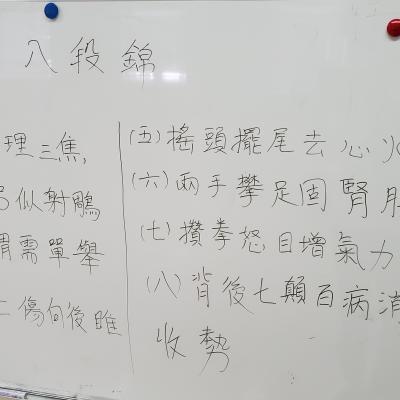 八段錦
理三焦,
似射鵰
胃需單舉
傷向後雎
(五)搖頭擺尾去心火
(六)兩手攀足固腎
(七)攢拳怒目增氣力
(八)背後七顛百病消
收勢